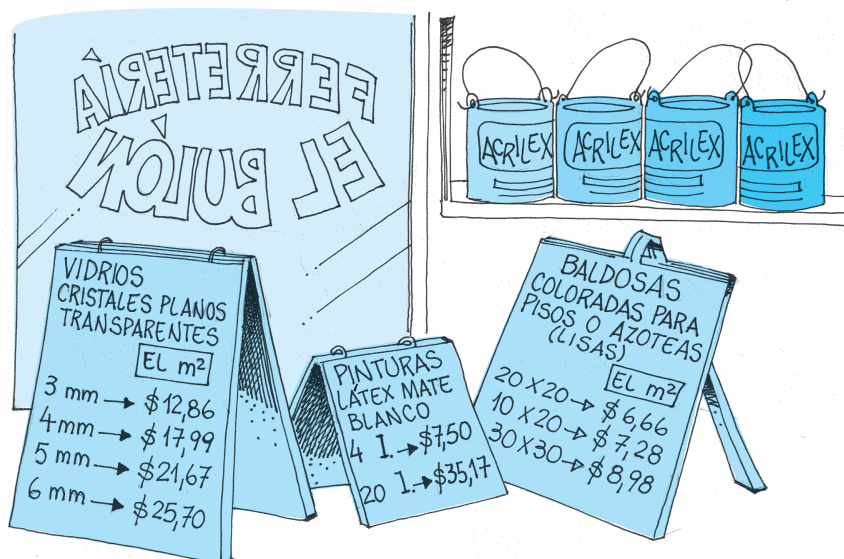 FERRETERÍA
EL BULÓN
ACRILEX
ACRILEX
ACRILEX
ACRILEX
VIDRIOS
CRISTALES PLANOS
TRANSPARENTES
EL m²
3 mm → $12,86
4mm → $17,99
5 mm → $21,67
6 mm → $25,70
PINTURAS
LÁTEX MATE
BLANCO
4 l. → $7,50
20 l. → $35,17
BALDOSAS
COLORADAS PARA
PISOS O AZOTEAS
(LISAS)
EL m²
20 X 20 → $6,66
10 X 20 → $7,28
30 X 30 → $8,98